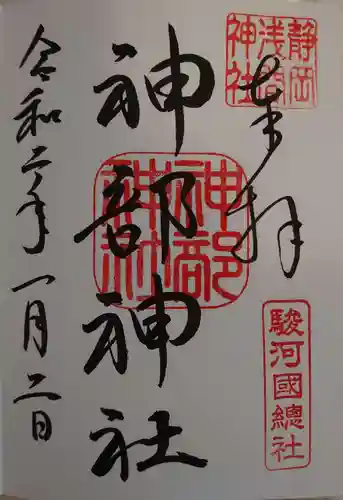 奉拝
静岡
浅間
神社
駿河國總社
神部神社
神部
神社
令和二年一月二日